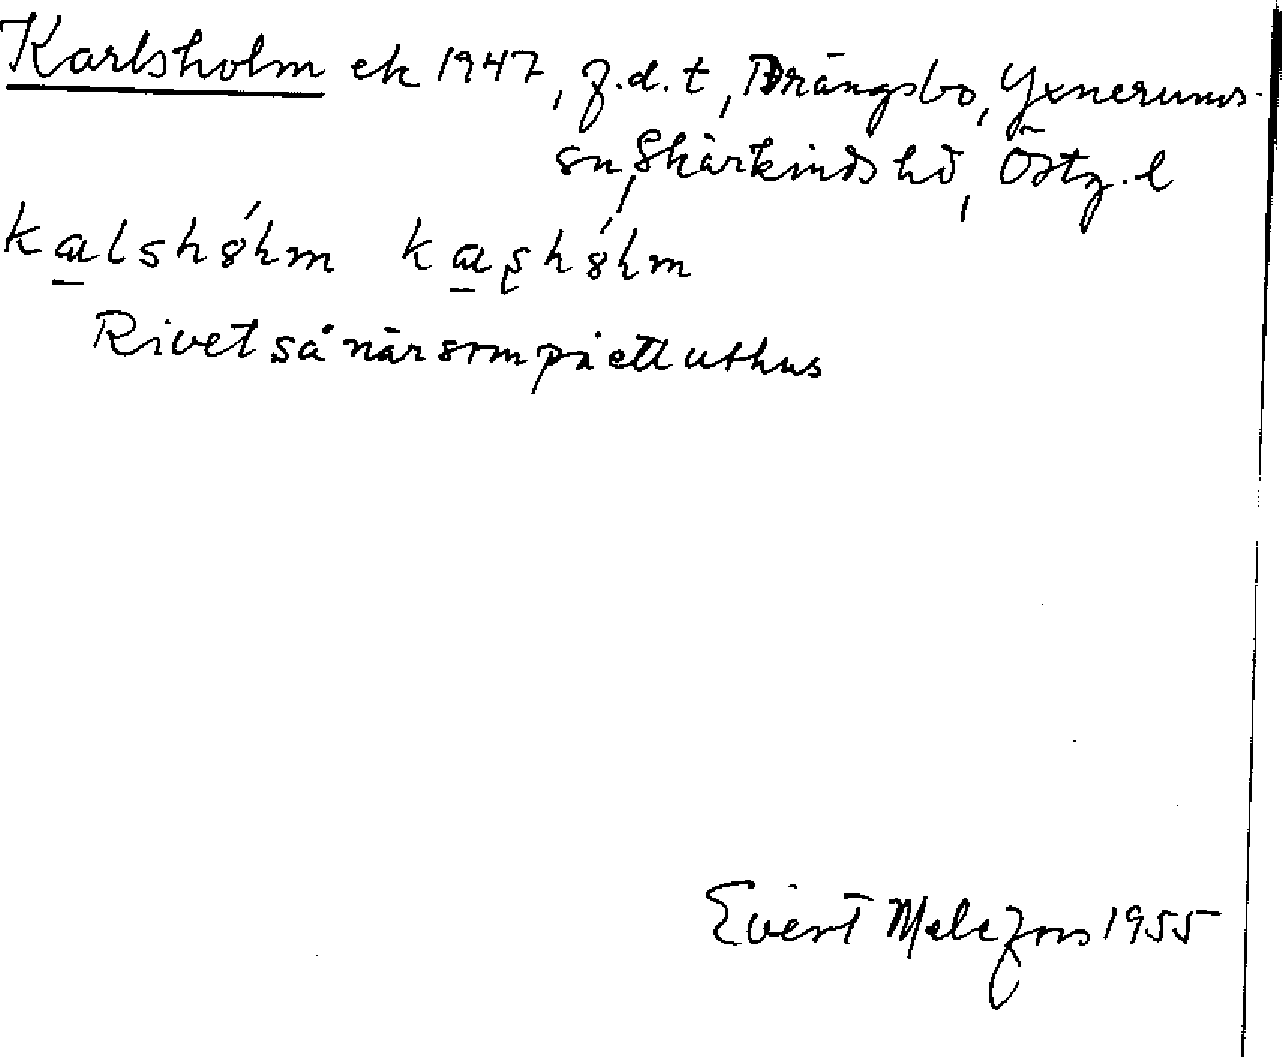 Karlsholm ek 1947, f.d.t, Drängsbo, Yxnerums
sn, Skärkinds hd, Östg. l
kalshólm kaʂhólm
Rivet så när som på ett uthus
Evert Melefors 1955